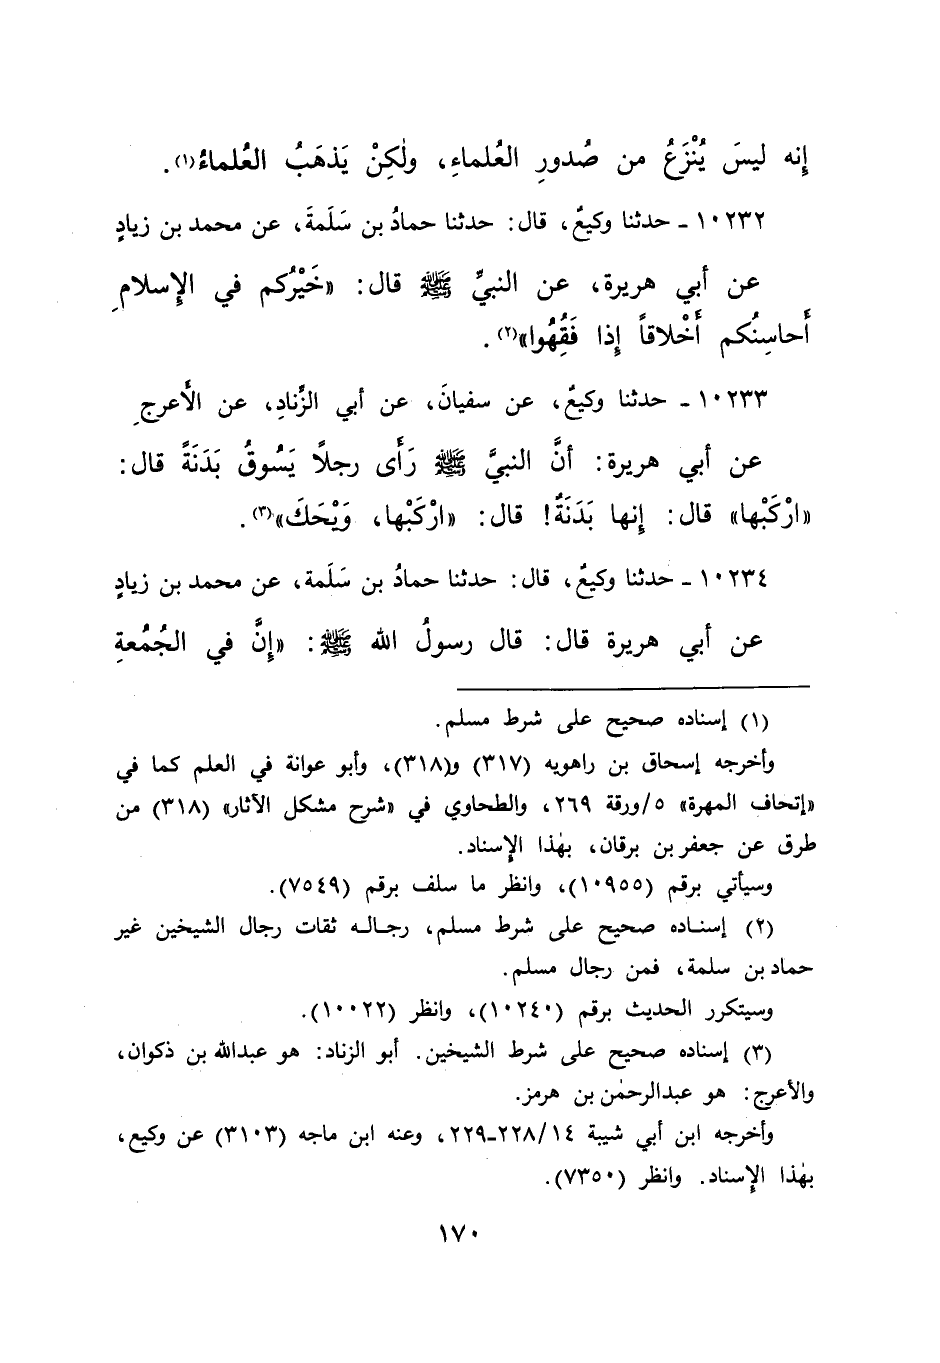 إنه ليسَ يُنْزَعُ من صُدورِ العُلماءِ، ولٰكِنْ يَذهَبُ العُلماءُ(١).
١٠٢٣٢ ـ حدثنا وكيعٌ، قال: حدثنا حمادُ بن سَلَمةَ، عن محمد بن زيادٍ
عن أبي هريرة، عن النبيِّ ﷺ قال: «خَيْرُكم في الإِسلامِ
أَحاسِنُكم أَخْلاقاً إِذا فَقُهُوا»(٢).
١٠٢٣٣ ـ حدثنا وكيعٌ، عن سفيانَ، عن أبي الزِّنادِ، عن الأَعرجِ
عن أبي هريرة: أنَّ النبيَّ ﷺ رَأَى رجلاً يَسُوقُ بَدَنَةً قال:
«ارْكَبْها» قال: إنها بَدَنَةٌ! قال: «ارْكَبْها، وَيْحَكَ»(٣).
١٠٢٣٤ ـ حدثنا وكيعٌ، قال: حدثنا حمادُ بن سَلَمة، عن محمد بن زيادٍ
عن أبي هريرة قال: قال رسولُ الله ﷺ: «إِنَّ في الجُمُعةِ
(١) إسناده صحيح على شرط مسلم.
وأخرجه إسحاق بن راهويه (٣١٧) و(٣١٨)، وأبو عوانة في العلم كما في
«إتحاف المهرة» ٥/ورقة ٢٦٩، والطحاوي في «شرح مشكل الآثار» (٣١٨) من
طرق عن جعفر بن برقان، بهٰذا الإِسناد.
وسيأتي برقم (١٠٩٥٥)، وانظر ما سلف برقم (٧٥٤٩).
(٢) إسناده صحيح على شرط مسلم، رجاله ثقات رجال الشيخين غير
حماد بن سلمة، فمن رجال مسلم.
وسيتكرر الحديث برقم (١٠٢٤٠)، وانظر (١٠٠٢٢).
(٣) إسناده صحيح على شرط الشيخين. أبو الزناد: هو عبدالله بن ذكوان،
والأعرج: هو عبدالرحمٰن بن هرمز.
وأخرجه ابن أبي شيبة ١٤/٢٢٨-٢٢٩، وعنه ابن ماجه (٣١٠٣) عن وكيع،
بهٰذا الإِسناد. وانظر (٧٣٥٠).
١٧٠